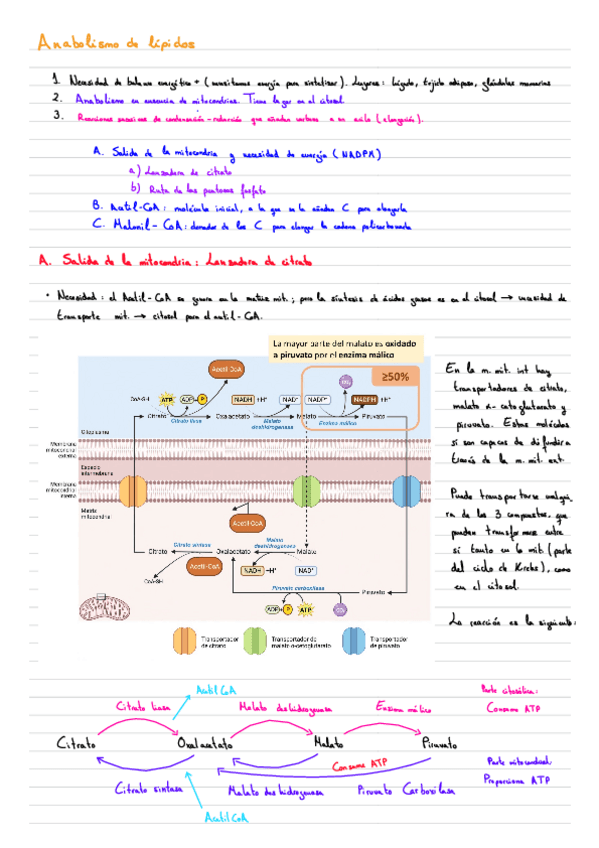 Anabolismo de lípidos
1. Necesidad de balance energético + (necesitamos energía para sintetizar). Lugares: hígado, tejido adiposo, glándulas mamarias
2. Anabolismo en ausencia de mitocondrias. Tiene lugar en el citosol
3. Reacciones sucesivas de condensación-reducción que añaden carbonos a un acilo (elongación).
A. Salida de la mitocondria y necesidad de energía (NADPH)
a) Lanzadera de citrato
b) Ruta de las pentosas fosfato
B. Acetil-CoA: molécula inicial, a la que se le añaden C para alargarla
C. Malonil-CoA: donador de los C para elongar la cadena policarbonada
A. Salida de la mitocondria: Lanzadera de citrato
• Necesidad: el Acetil-CoA se genera en la matriz mit.; pero la síntesis de ácidos grasos es en el citosol → necesidad de
transporte mit. → citosol para el acetil-CoA.
La mayor parte del malato es oxidado
a piruvato por el enzima málico
≥50%
CO₂
Acetil CoA
CoA-SH ATP ADP + P NADH +H⁺ NAD⁺ NADP⁺ NADPH +H⁺
Citrato Oxalacetato Malato Piruvato
Citrato liasa
Malato deshidrogenasa
Enzima málico
Citoplasma
Membrana mitocondrial externa
Espacio intermembrana
Membrana mitocondrial interna
Matriz mitocondrial
Acetil-CoA
Citrato sintasa
Malato deshidrogenasa
Citrato Oxalacetato Malato
Acetil-CoA
CoA-SH
NADH +H⁺ NAD⁺
Piruvato carboxilasa
Piruvato
ADP + P ATP CO₂
Transportador de citrato
Transportador de malato α-cetoglutarato
Transportador de piruvato
En la m. mit. int hay
transportadores de citrato,
malato α-cetoglutarato y
piruvato. Estas moléculas
sí son capaces de difundir a
través de la m. mit. ext.
Puede transportarse cualquie-
ra de los 3 compuestos, que
pueden transformarse entre
sí tanto en la mit. (parte
del ciclo de Krebs), como
en el citosol.
La reacción es la siguiente:
Acetil CoA
Citrato liasa Malato deshidrogenasa Enzima málico
Parte citosólica:
Consume ATP
Citrato Oxalacetato Malato Piruvato
Consume ATP
Parte mitocondrial
Proporciona ATP
Citrato sintasa Malato deshidrogenasa Piruvato Carboxilasa
Acetil CoA